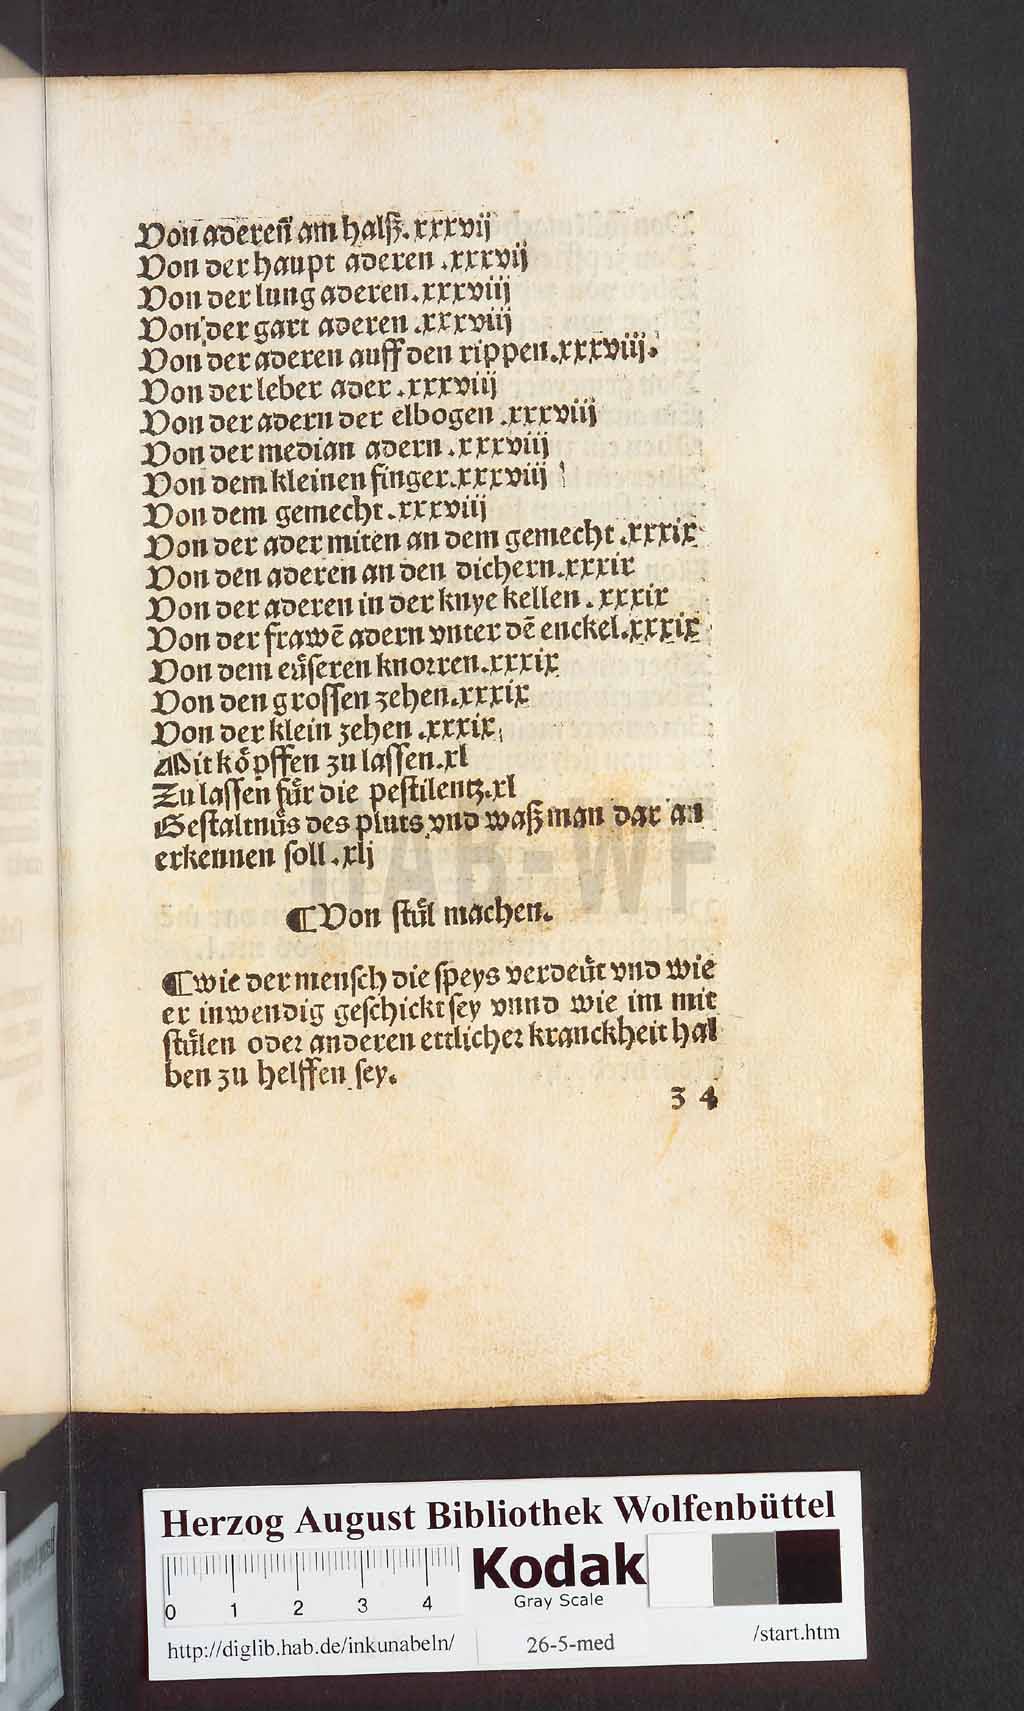 Von aderen̄ am halß. xxxvij
Von der haupt aderen .xxxvij
Von der lung aderen.xxxviij
Von der gart aderen .xxxviij
Von der aderen auff den rippen.xxxviij.
Von der leber ader .xxxviij
Von der adern der elbogen .xxxviij
Von der median adern .xxxviij
Von dem kleinen finger.xxxviij
Von dem gemecht .xxxviij
Von der ader miten an dem gemecht .xxxix
Von den aderen an den dichern.xxxix
Von der aderen in der knye kellen . xxxix
Von der frawē adern vnter dē enckel.xxxix
Von dem eüseren knorren.xxxix
Von den grossen zehen.xxxix
Von der klein zehen .xxxix
Mit köpffen zu lassen.xl
Zu lassen für die pestilentz.xl
Gestaltnüs des pluts vnd waß man dar an
erkennen soll .xlj
¶ Von stül machen.
¶ wie der mensch die speys verdeüt vnd wie
er inwendig geschickt sey vnnd wie im mit
stülen oder anderen ettlicher kranckheit hal
ben zu helffen sey.
34
HAB-WF
Herzog August Bibliothek Wolfenbüttel
Kodak
Gray Scale
0 1 2 3 4
http://diglib.hab.de/inkunabeln/ 26-5-med /start.htm